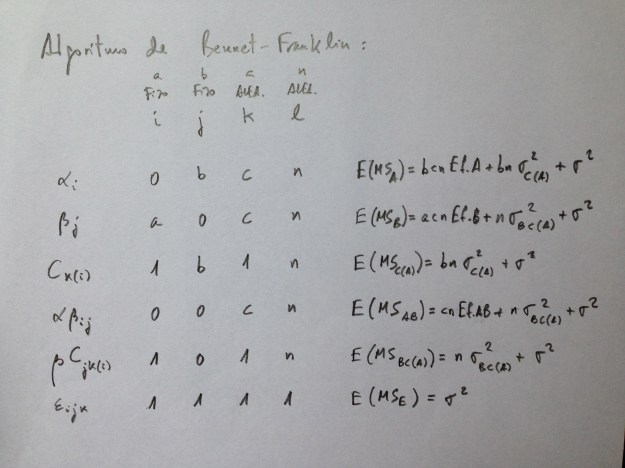 Algoritmo de Bennet-Franklin:
a b c n
Fijo Fijo Alea. Alea.
i j k l
αi 0 b c n E(MS_A) = bcn Ef.A + bn σ²_C(A) + σ²
βj a 0 c n E(MS_B) = acn Ef.B + n σ²_BC(A) + σ²
C_k(i) 1 b 1 n E(MS_C(A)) = bn σ²_C(A) + σ²
αβij 0 0 c n E(MS_AB) = cn Ef.AB + n σ²_BC(A) + σ²
βC_jk(i) 1 0 1 n E(MS_BC(A)) = n σ²_BC(A) + σ²
εijk 1 1 1 1 E(MS_E) = σ²